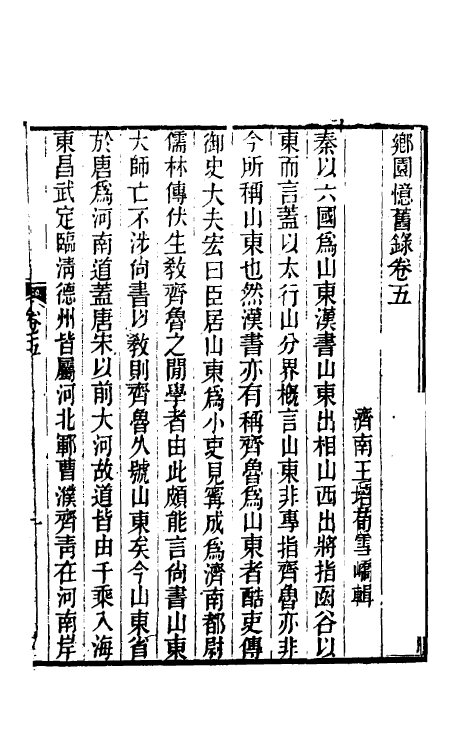 鄉園憶舊錄卷五
濟南王培荀雪嶠輯
秦以六國爲山東漢書山東出相山西出將指函谷以
東而言蓋以太行山分界槪言山東非專指齊魯亦非
今所稱山東也然漢書亦有稱齊魯爲山東者酷吏傳
御史大夫宏曰臣居山東爲小吏見寗成爲濟南都尉
儒林傳伏生敎齊魯之閒學者由此頗能言尙書山東
大師亡不涉尙書以敎則齊魯久號山東矣今山東省
於唐爲河南道蓋唐宋以前大河故道皆由千乘入海
東昌武定臨淸德州皆屬河北鄆曹濮齊靑在河南岸
卷五
一